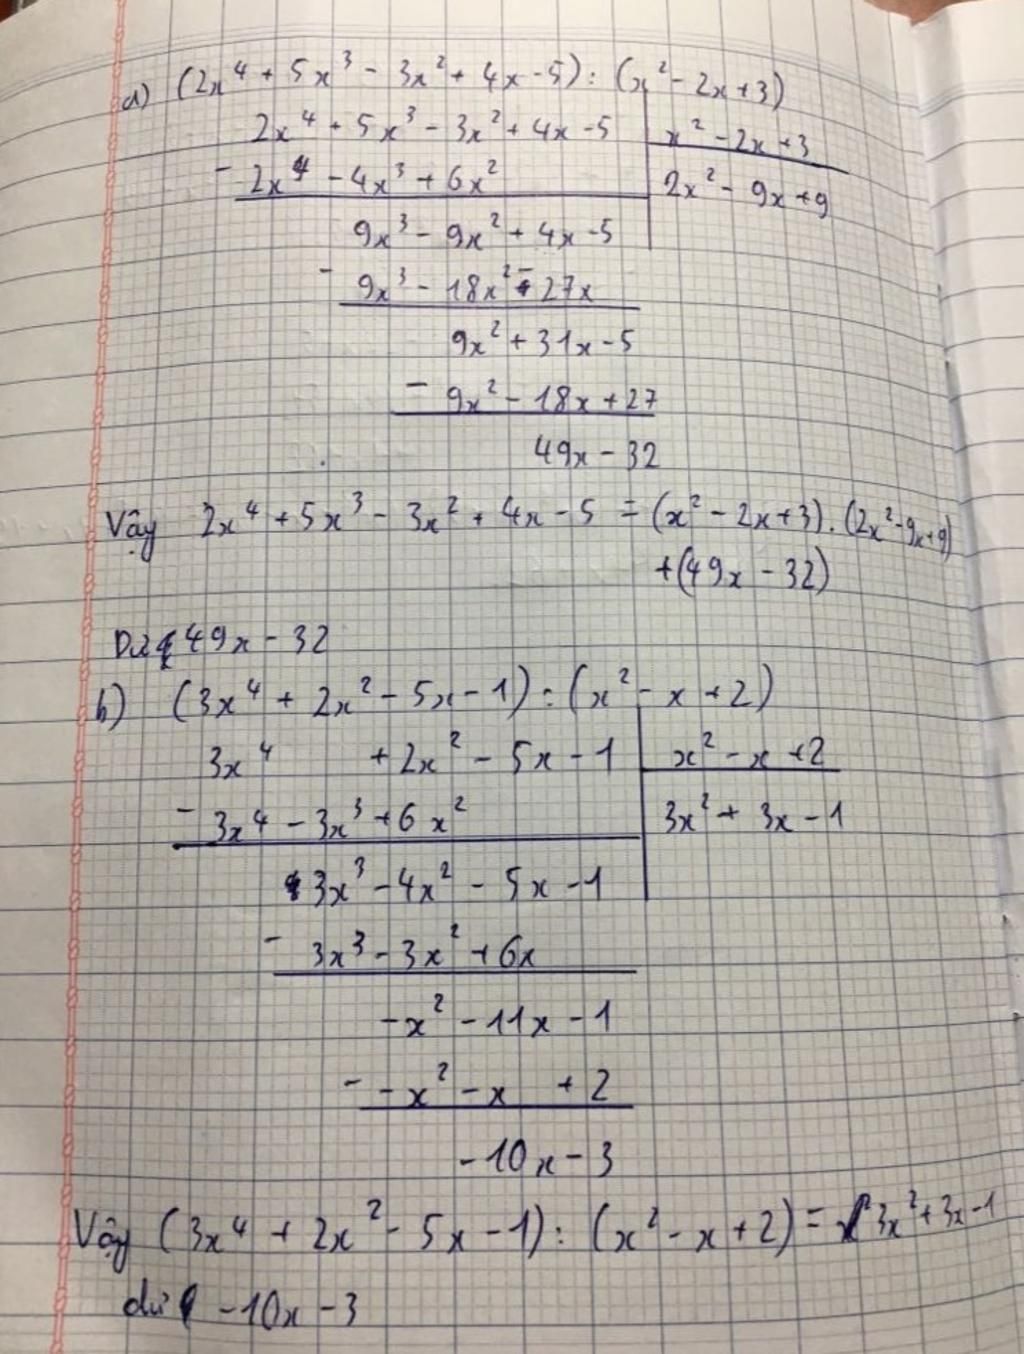 a) (2x⁴ + 5x³ - 3x² + 4x - 5) : (x² - 2x + 3)
2x⁴ + 5x³ - 3x² + 4x - 5 | x² - 2x + 3
- 2x⁴ - 4x³ + 6x² | 2x² - 9x + 9
9x³ - 9x² + 4x - 5
- 9x³ - 18x² - 27x
9x² + 31x - 5
- 9x² - 18x + 27
49x - 32
Vậy 2x⁴ + 5x³ - 3x² + 4x - 5 = (x² - 2x + 3) . (2x² - 9x + 9)
+ (49x - 32)
Dư 49x - 32
b) (3x⁴ + 2x² - 5x - 1) : (x² - x + 2)
3x⁴ + 2x² - 5x - 1 | x² - x + 2
- 3x⁴ - 3x³ + 6x² | 3x² + 3x - 1
3x³ - 4x² - 5x - 1
- 3x³ - 3x² + 6x
-x² - 11x - 1
- -x² - x + 2
-10x - 3
Vậy (3x⁴ + 2x² - 5x - 1) : (x² - x + 2) = 3x² + 3x - 1
dư -10x - 3